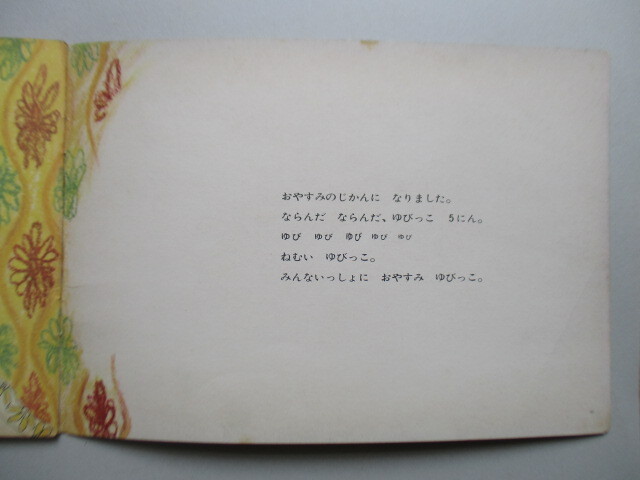 おやすみのじかんに　なりました。
ならんだ　ならんだ、ゆびっこ　5にん。
ゆび　ゆび　ゆび　ゆび　ゆび
ねむい　ゆびっこ。
みんないっしょに　おやすみ　ゆびっこ。